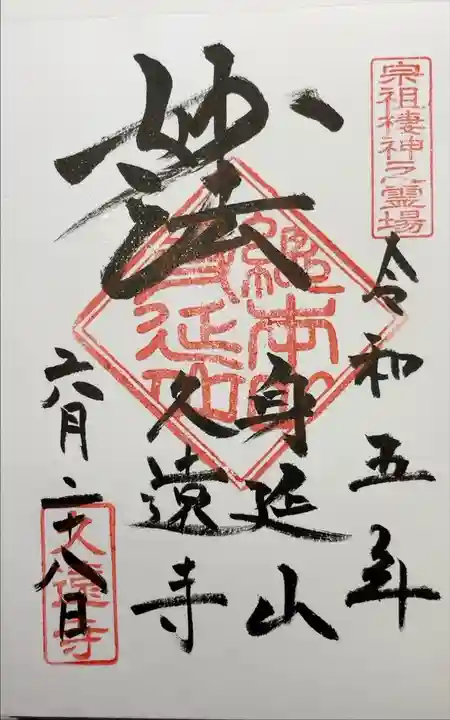 宗祖棲神之霊場
令和五年
妙法
身延山
久遠寺
總本山
身延山
六月二十八日
久遠寺